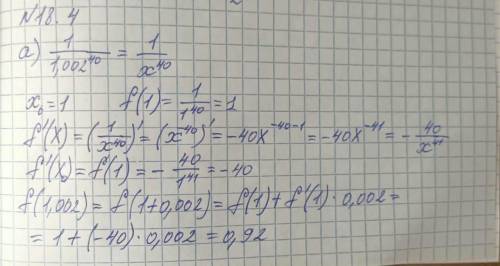 №18.4
а) 1/1,002⁴⁰ = 1/x⁴⁰
x₀ = 1 f(1) = 1/1⁴⁰ = 1
f'(x) = (1/x⁴⁰)' = (x⁴⁰)' = -40x⁻⁴⁰⁻¹ = -40x⁻⁴¹ = - 40/x⁴¹
f'(x₀) = f'(1) = - 40/1⁴¹ = -40
f(1,002) = f(1+0,002) = f(1) + f'(1) · 0,002 =
= 1 + (-40) · 0,002 = 0,92